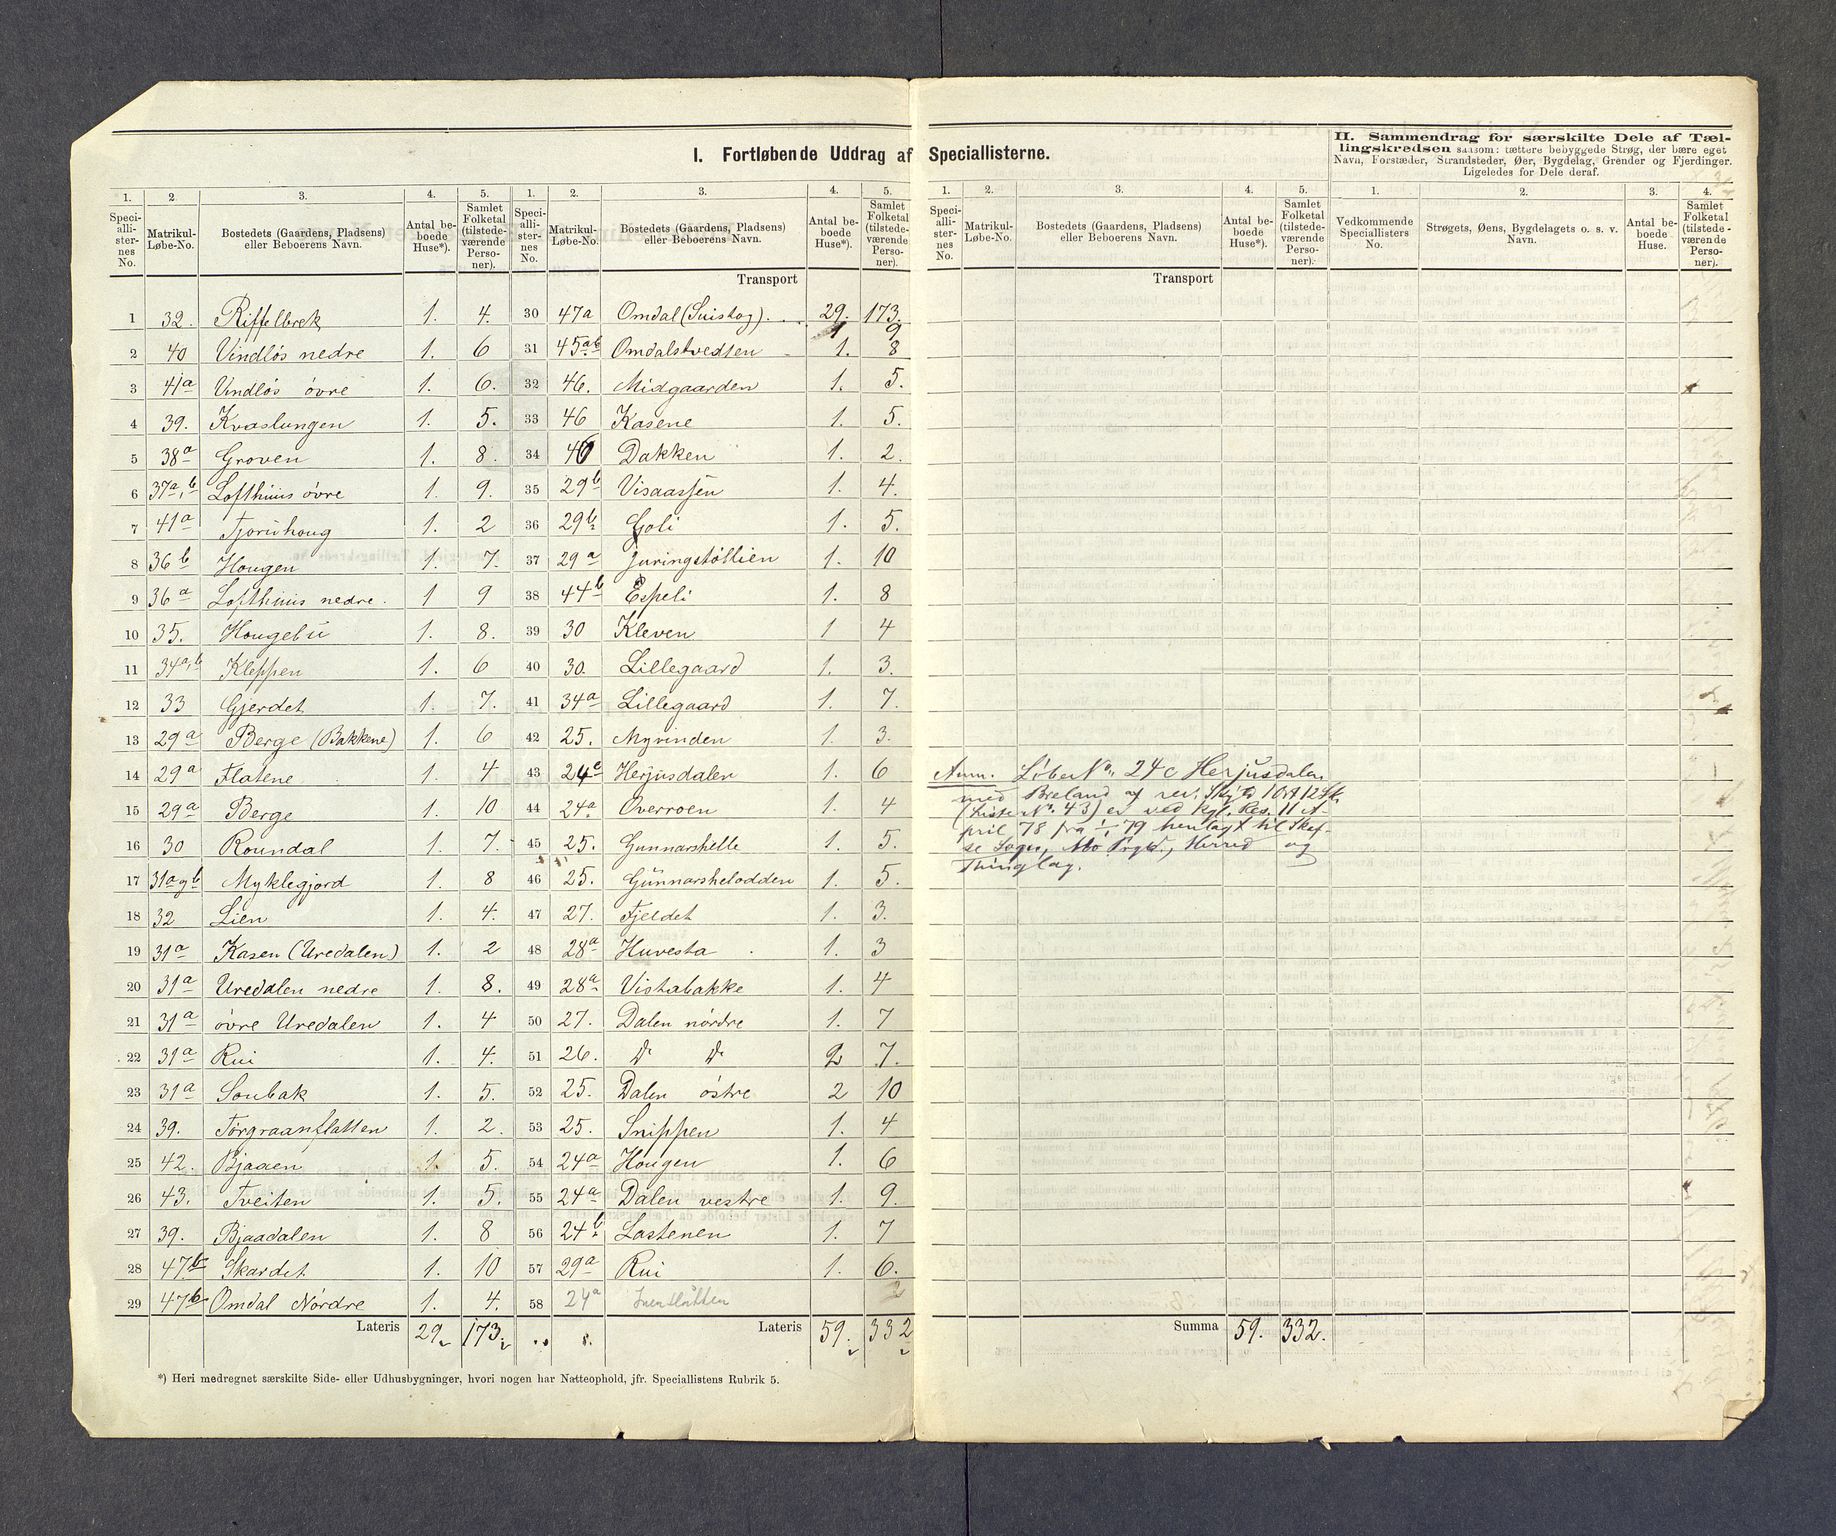 I. Fortløbende Uddrag af Speciallisterne.
II. Sammendrag for særskilte Dele af Tæl-
lingskredsen saasom: tættere bebyggede Strøg, der bære eget
Navn, Forstæder, Strandsteder, Øer, Bygdelag, Grender og Fjerdinger.
Ligeledes for Dele deraf.
1. 2. 3. 4. 5. 1. 2. 3. 4. 5. 1. 2. 3. 4. 5. 1. 2. 3. 4.
Speciallisternes No. Matrikul-Løbe-No. Bostedets (Gaardens, Pladsens) eller Beboerens Navn. Antal beboede Huse*). Samlet Folketal (tilstedeværende Personer).
Speciallisternes No. Matrikul-Løbe-No. Bostedets (Gaardens, Pladsens) eller Beboerens Navn. Antal beboede Huse*). Samlet Folketal (tilstedeværende Personer).
Speciallisternes No. Matrikul-Løbe-No. Bostedets (Gaardens, Pladsens) eller Beboerens Navn. Antal beboede Huse*). Samlet Folketal (tilstedeværende Personer).
Vedkommende Speciallisters No. Strøgets, Øens, Bygdelagets o. s. v. Navn. Antal beboede Huse. Samlet Folketal (tilstedeværende Personer).
Transport Transport
1 32. Riffelbrek 1. 4.
2 40 Vindlös nedre 1. 6
3 41a Vindlös övre 1. 6.
4 39. Kvaslungen 1. 5.
5 38a Groven 1. 8
6 37a,b Lofthuus övre 1. 9.
7 41a Tjoruhoug 1. 2
8 36b Hougen 1. 7.
9 36a Lofthuus nedre. 1 9
10 35. Hougebu 1. 8.
11 34a,b Kleppen 1. 6
12 33 Gjerdet 1. 7.
13 29a Berge (Bakkene) 1. 6
14 29a Flatene 1. 4
15 29a Berge 1. 10
16 30 Roundal 1. 7.
17 31a og b Myklegjord 1. 8
18 32 Lien 1. 4.
19 31a Kasen (Uredalen) 1. 2
20 31a Uredalen nedre 1. 8.
21 31a övre Uredalen 1. 4
22 31a Rui 1. 4.
23 31a Soubak 1. 5.
24 39. Torgraanflatten 1. 2.
25 42. Bjaaen 1. 5.
26 43. Tveiten 1. 5.
27 39. Bjaadalen 1. 8
28 47b Skardet 1. 10
29 47b Omdal Nördre 1. 4.
Lateris 29. 173.
29. 173.
30 47a Omdal (Suistog) 1 9
31 45ab Omdalstvedten 1. 8
32 46. Midgaarden 1. 5.
33 46 Kasene 1. 5.
34 46 Dakken 1. 2.
35 29b Visaassen 1. 4.
36 29b Goli 1. 5.
37 29a Juringstöllien 1. 10
38 44b Espeli 1. 8
39 30 Kleven 1 4
40 30. Lillegaard 1. 3.
41 34a Lillegaard 1. 7.
42 25. Myrinden 1. 3.
43 24c Herjusdalen 1. 6
44 24a Overroen 1. 4
45 25. Gunnarshelle 1. 5.
46 25. Gunnarshelodden 1. 5.
47 27. Fjeldet 1. 3.
48 28a Huvesta 1. 3
49 28a Vistabakke 1. 4
50 27. Dalen nördre 1. 7
51 26. do do 2 7.
52 25. Dalen östre 2 10
53 25. Snippen 1. 4
54 24a Hougen 1. 6
55 24a Dalen vestre 1. 9.
56 24b Lastenen 1. 7
57 29a Rui 1. 6.
58 24a 2
Lateris 59. 332
Anm. LöbeNo. 24c Herjusdalen
med Breland af rev. Skyld 1 Ort 12 Sk.
(Liste No. 43) er ved kgl. Res. 11 A
pril 78 fra 1/1 79 henlagt til Skaf-
se Sogn, Mo Prgld., Herred og
Thinglag.
Summa 59. 332.
*) Heri medregnet særskilte Side- eller Udhusbygninger, hvori nogen har Natteophold, jfr. Speciallistens Rubrik 5.